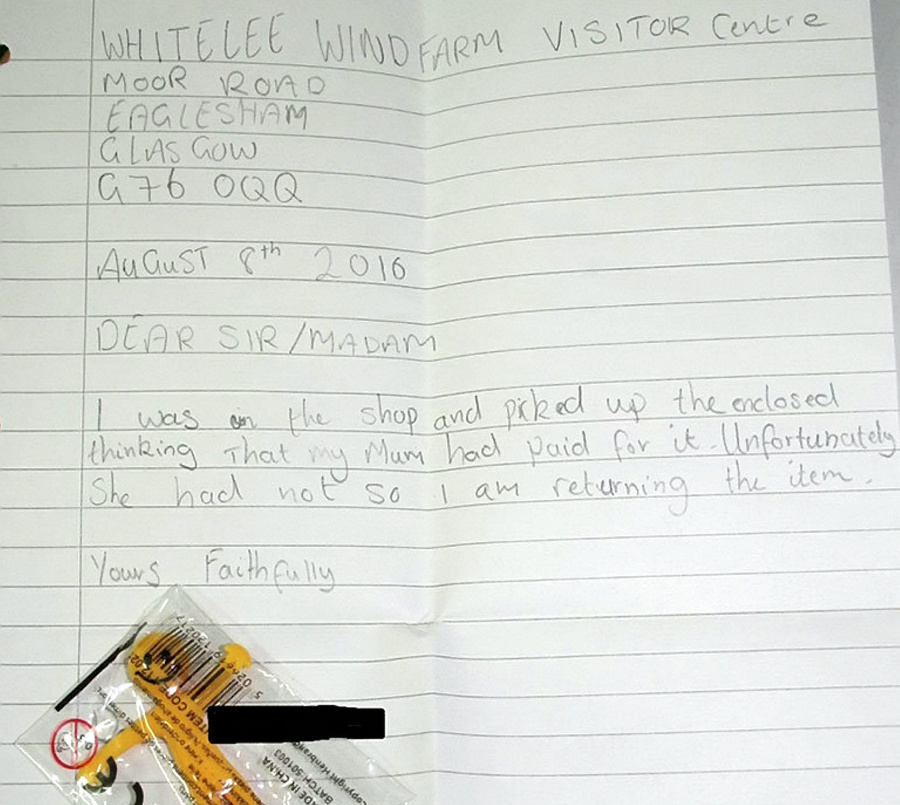 WHITELEE WINDFARM VISITOR Centre
MOOR ROAD
EAGLESHAM
GLASGOW
G76 0QQ
AUGUST 8th 2016
DEAR SIR/MADAM
I was in the shop and picked up the enclosed
thinking That my Mum had paid for it. Unfortunately
She had not so I am returning the item.
Yours Faithfully
ITEM CODE
MADE IN CHINA
BATCH:501003
Copyright Henbrandt